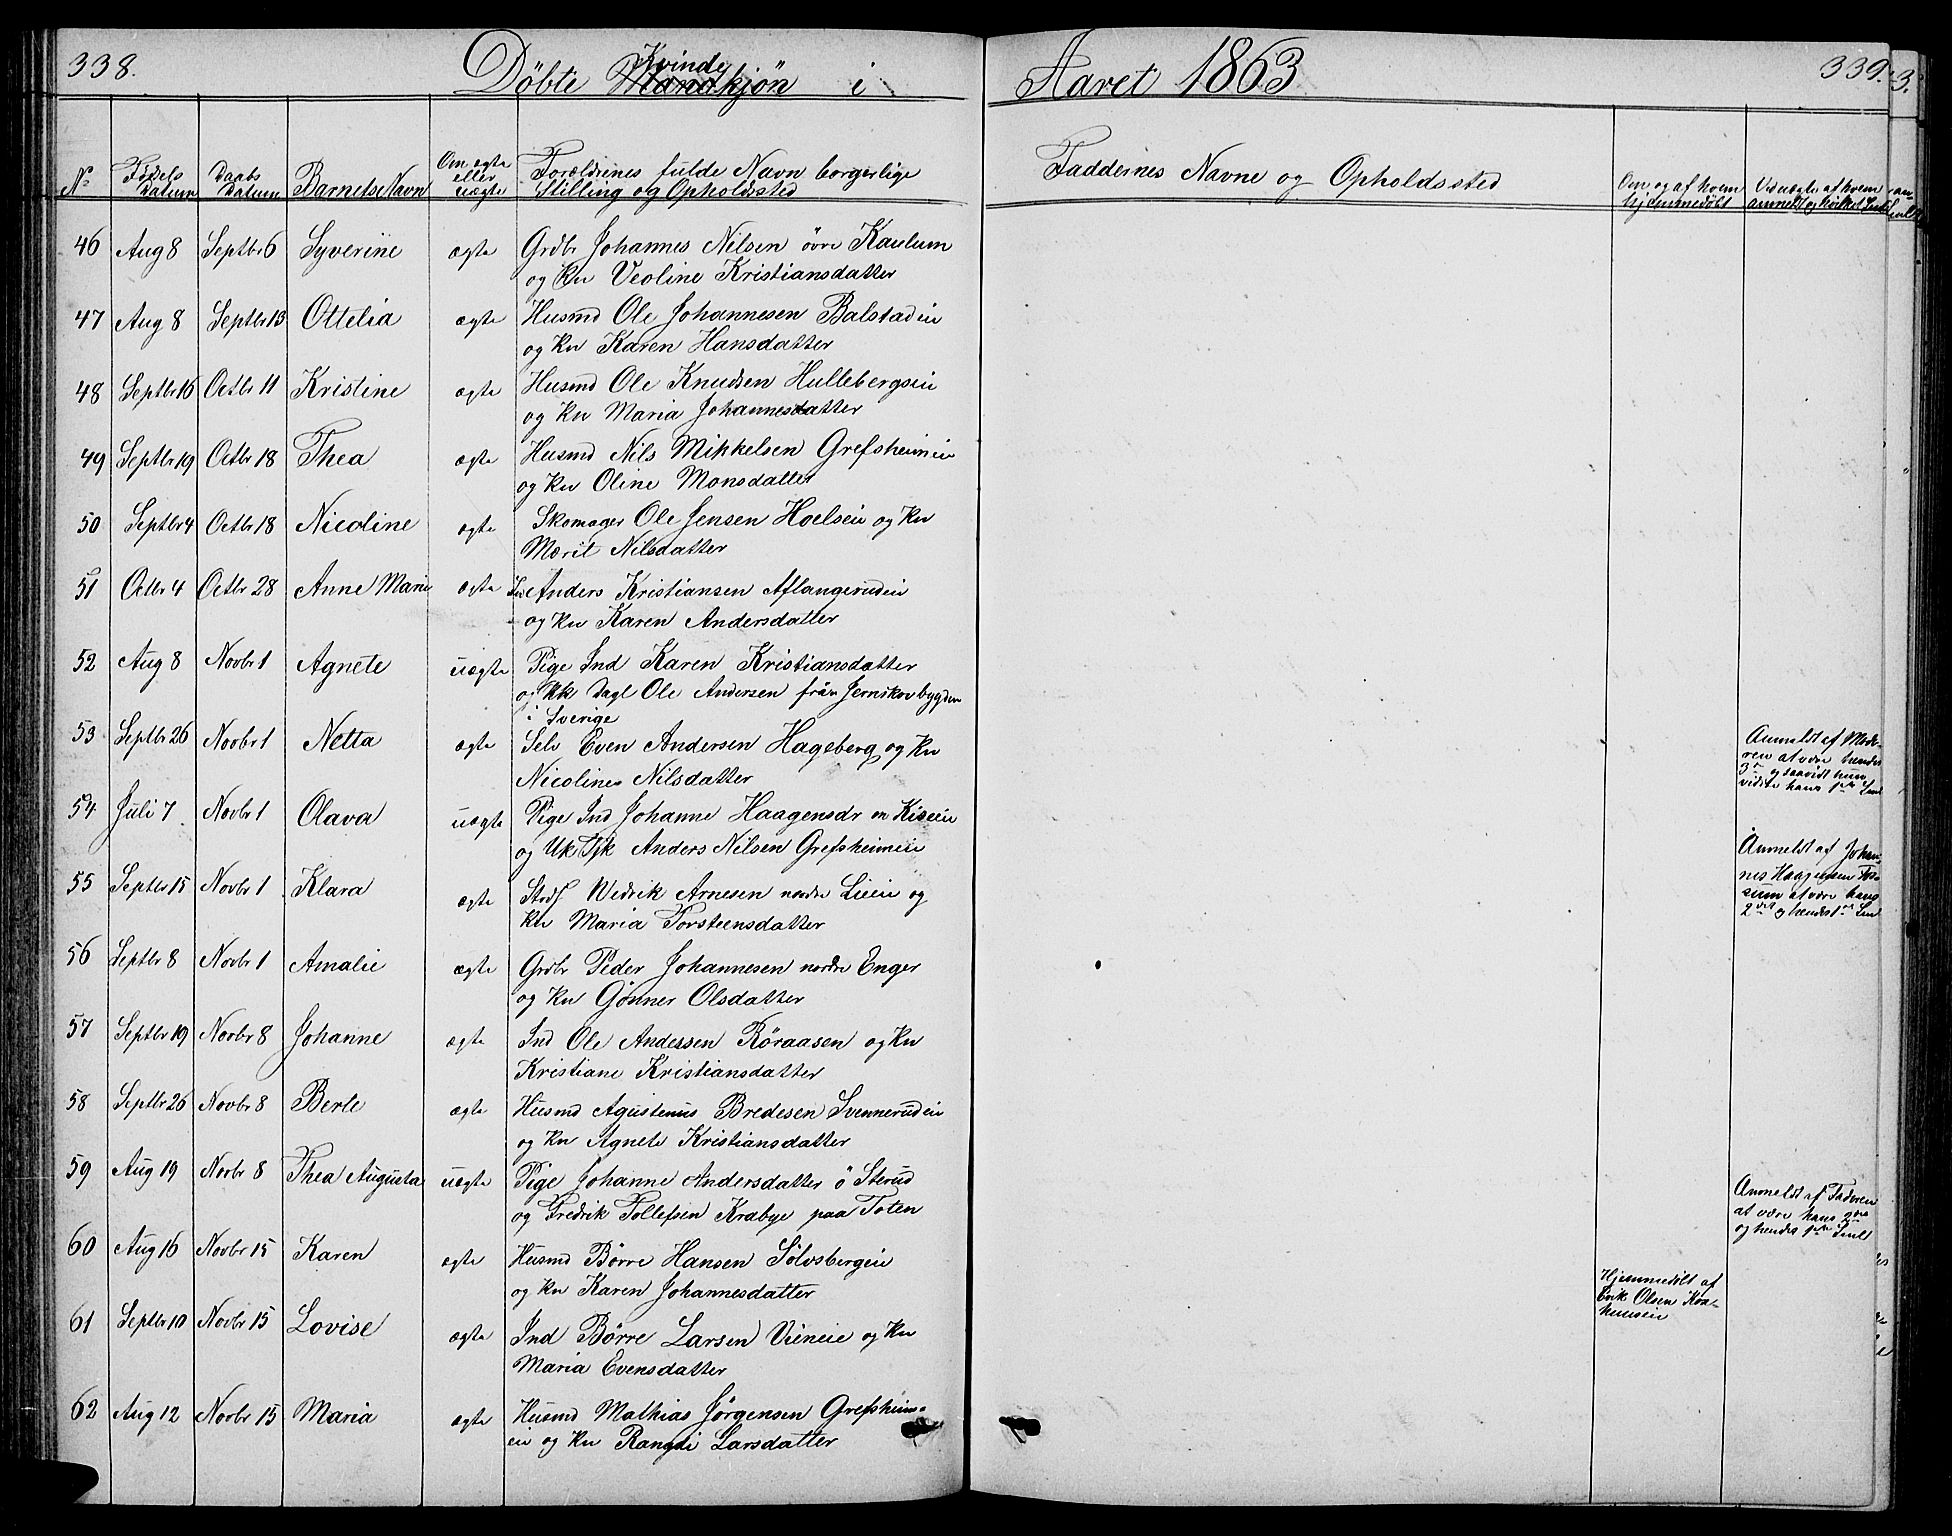 338.
Döbte Mandkjön i
Kvinde
Aaret 1863
339.
3.
No
Födsels Datum
Daabs Datum
Barnets Navn
Om ægte eller uægte
Forældrenes fulde Navn borgerlige Stilling og Opholdssted
Faddernes Navne og Opholdssted
Om og af hvem hjemmedöbt
Ved uægte af hvem anmeldt og hvilket
46 Aug 8 Septbr 6 Syverine ægte Grdbr Johannes Nilsen övre Kaulum
og Kn Veoline Kristiansdatter
47 Aug 8 Septbr 13 Ottelia ægte Husmd Ole Johannesen Balstadeie
og Kn Karen Hansdatter
48 Septbr 16 Octbr 11 Kristine ægte Husmd Ole Knudsen Hullebergseie
og Kn Maria Johannesdatter
49 Septbr 19 Octbr 18 Thea ægte Husmd Nils Mikkelsen Grefsheimeie
og Kn Oline Monsdatter
50 Septbr 4 Octbr 18 Nicoline ægte Skomager Ole Jensen Hoelseie og Kn
Marit Nilsdatter
51 Octbr 4 Octbr 28 Anne Marie ægte Anders Kristiansen Aflangerudeie
og Kn Karen Andersdatter
52 Aug 8 Novbr 1 Agnete uægte Pige Ind Karen Kristiansdatter
og Kk Dagl Ole Andersen från Jernskovbygden
i Sverige
53 Septbr 26 Novbr 1 Netta ægte Selv Even Andersen Hageberg og Kn
Nicoline Nilsdatter
Anmeldt af Mode-
ren at være hendes
3 og saavidt hun
vidste hans 1ste
54 Juli 7 Novbr 1 Olava uægte Pige Ind Johanne Haagensdr Kiseeie
og Uk Tjk Anders Nilsen Grefsheimeie
Anmeldt af Johan-
nes Haagensen
at være hans
2det og hendes
55 Septbr 15 Novbr 1 Klara ægte Wedrik Arnesen nordre Lieeie og
Kn Maria Torsteensdatter
56 Septbr 8 Novbr 1 Amalie ægte Grdbr Peder Johannesen nordre Enger
og Kn Gönner Olsdatter
57 Septbr 19 Novbr 8 Johanne ægte Ind Ole Andersen Röraasen og Kn
Kristiane Kristiansdatter
58 Septbr 26 Novbr 8 Berte ægte Husmd Agustenus Bredesen Svennerudeie
og Kn Agnete Kristiansdatter
59 Aug 19 Novbr 8 Thea Augusta uægte Pige Johanne Andersdatter ö Sterud
og Fredrik Tollefsen Krabye paa Toten
Anmeldt af Faderen
at være hans
og hendes 1ste
60 Aug 16 Novbr 15 Karen ægte Husmd Börre Hansen Sölvsbergeie
og Kn Karen Johannesdatter
Hjemmedöbt af
Erik Olsen
61 Septbr 10 Novbr 15 Lovise ægte Ind Börre Larsen Vieneie og Kn
Maria Evensdatter
62 Aug 12 Novbr 15 Maria ægte Husmd Mathias Jörgensen Grefsheim-
eie og Kn Rangdi Larsdatter